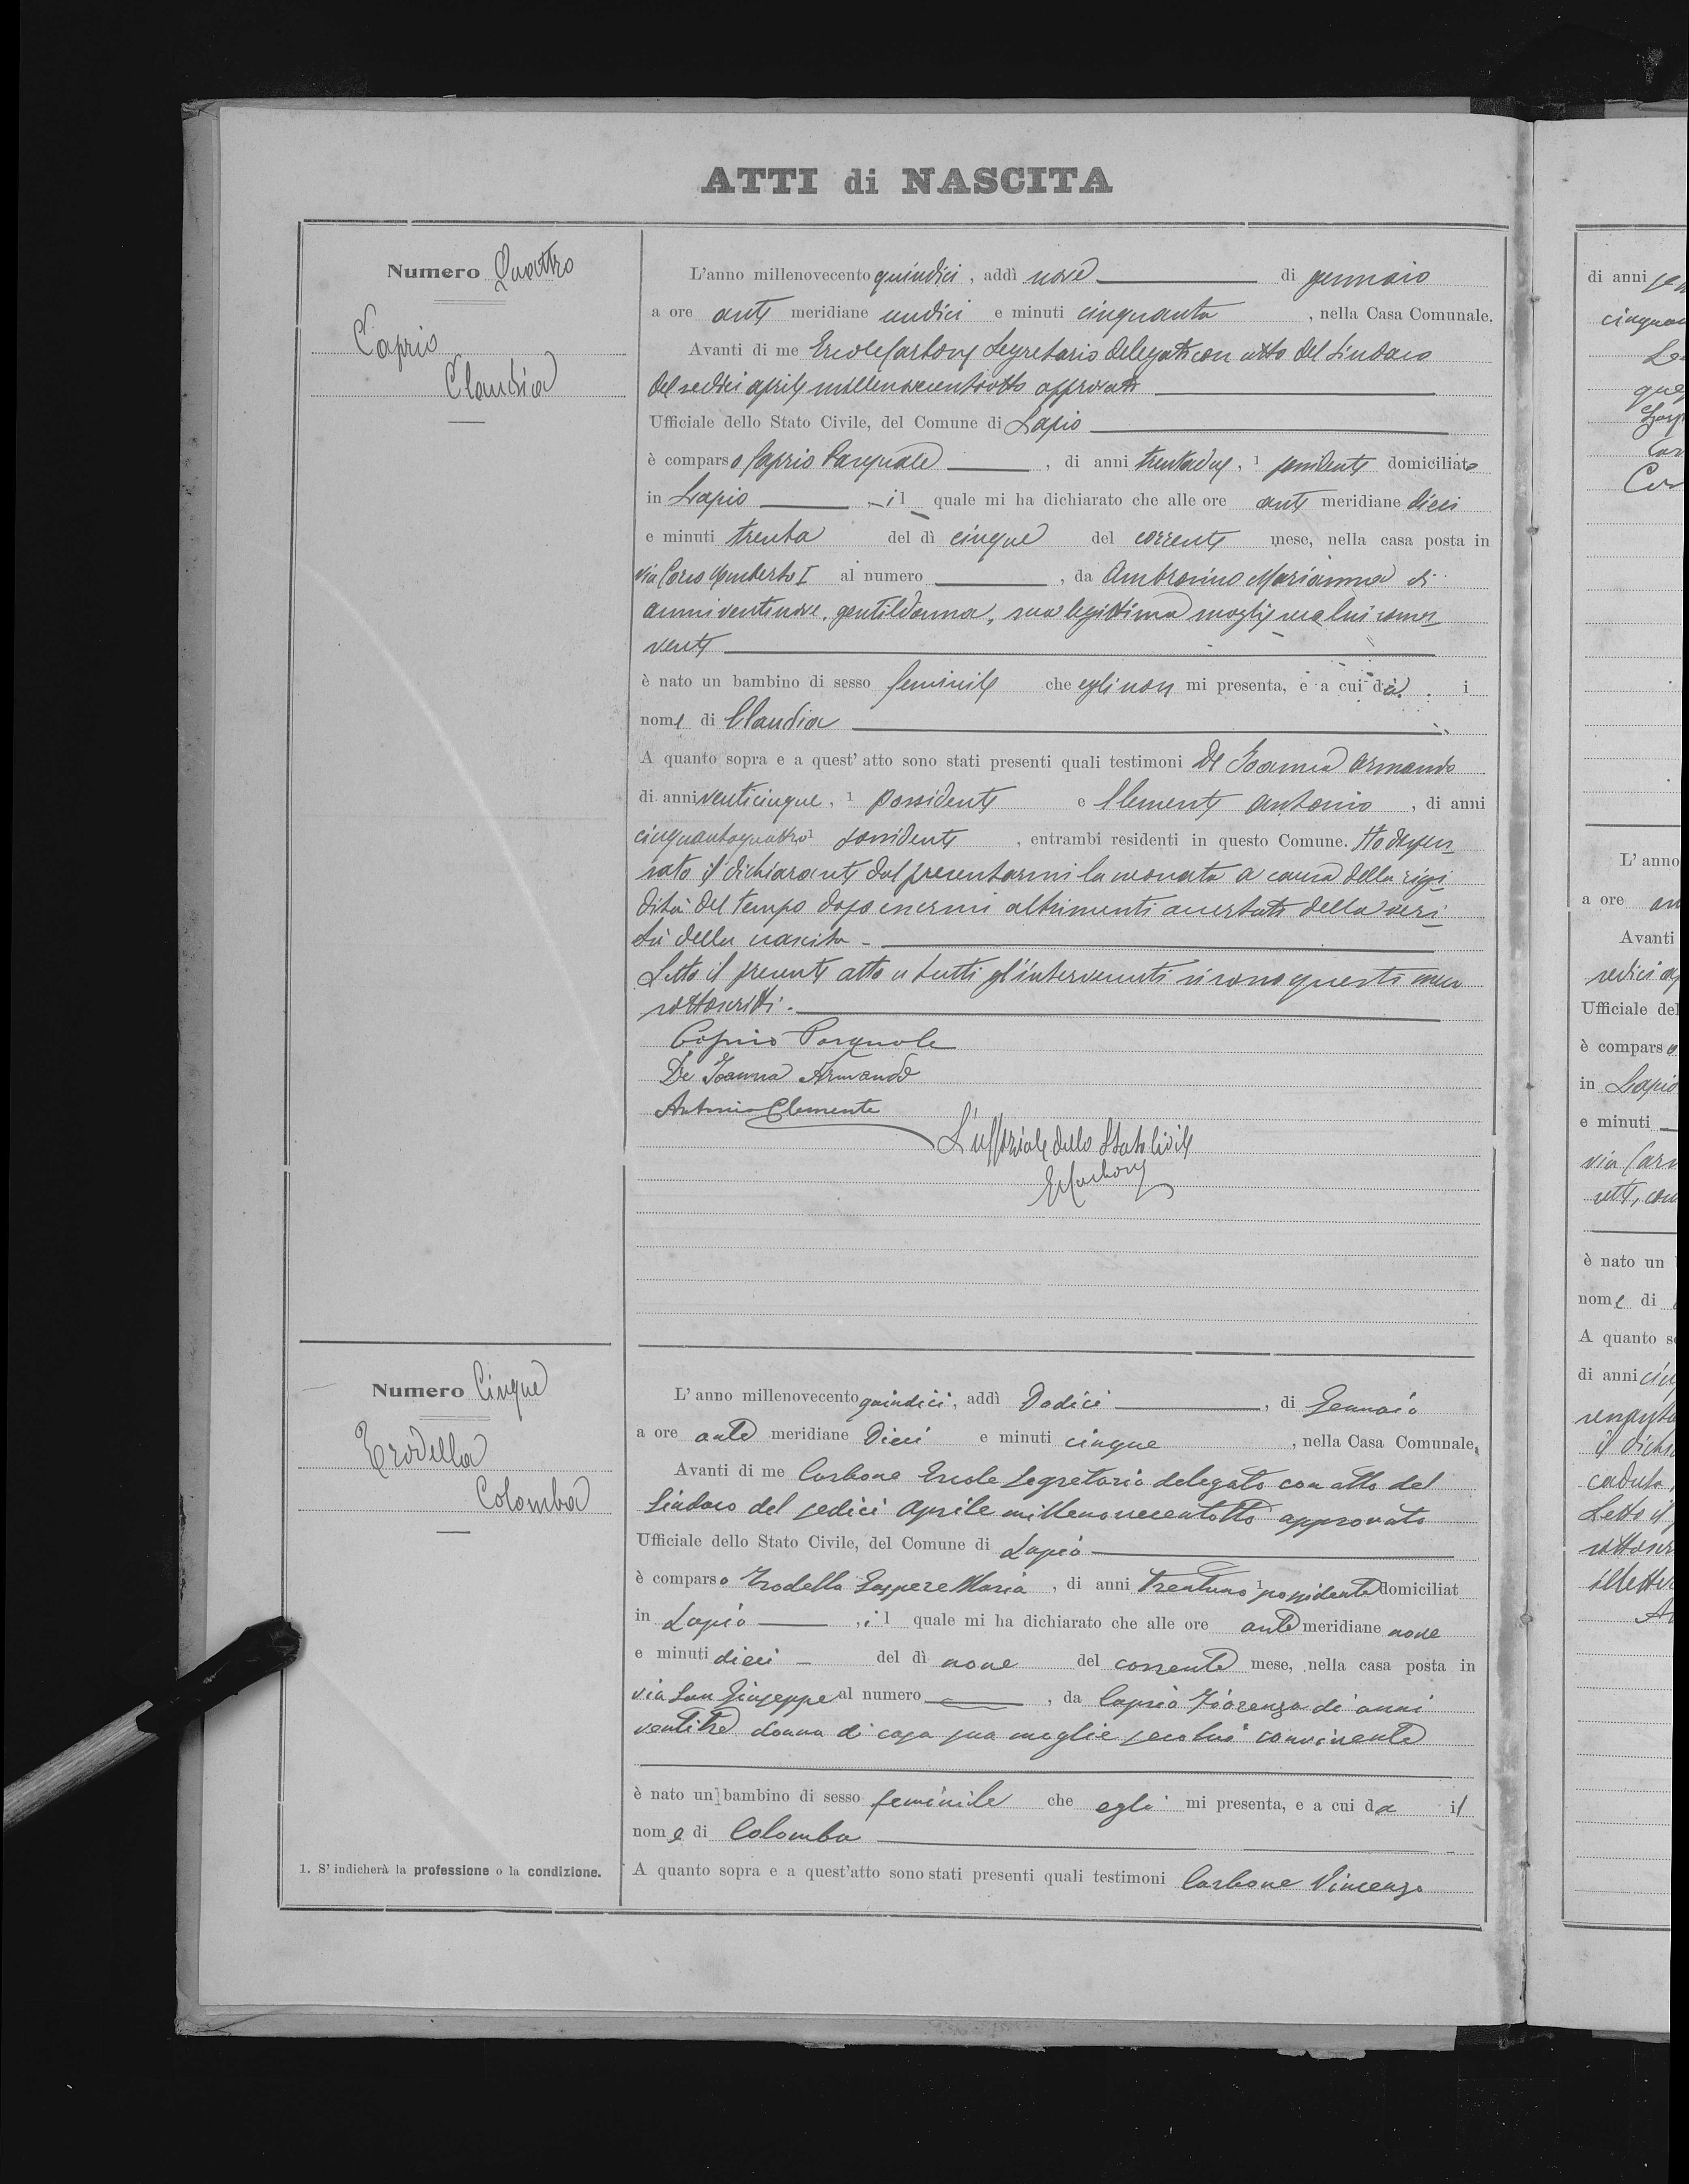 ATTI di NASCITA
Numero Quattro
Caprio
Claudia
L'anno millenovecento quindici, addì nove di gennaio
a ore ante meridiane undici e minuti cinquanta, nella Casa Comunale.
Avanti di me Ercole Carbone Segretario delegato con atto del Sindaco
del sedici aprile millenovecentootto approvato
Ufficiale dello Stato Civile, del Comune di Lapio
è comparso Caprio Pasquale, di anni trentadue, 1 possidente domiciliato
in Lapio, il quale mi ha dichiarato che alle ore ante meridiane dieci
e minuti trenta del dì cinque del corrente mese, nella casa posta in
via Corso Umberto I al numero , da Ambrosino Marianna di
anni ventinove, gentildonna, sua legittima moglie seco lui convi
vente
è nato un bambino di sesso feminile che egli non mi presenta, e a cui dà i
nome di Claudia
A quanto sopra e a quest'atto sono stati presenti quali testimoni De Ioanna Armando
di anni venticinque, 1 possidente e Clemente Antonio, di anni
cinquantaquattro 1 possidente, entrambi residenti in questo Comune. Ho dispen
sato il dichiarante dal presentarmi la neonata a causa della rigi
dità del tempo dopo essermi altrimenti accertato della veri
tà della nascita -
Letto il presente atto a tutti gl'intervenuti si sono questi meco
sottoscritti.
Caprio Pasquale
De Ioanna Armando
Antonio Clemente
L'uffiziale dello Stato Civile
E. Carbone
Numero Cinque
Trodella
Colomba
L'anno millenovecento quindici, addì Dodici, di Gennaio
a ore ante meridiane Dieci e minuti cinque, nella Casa Comunale,
Avanti di me Carbone Ercole Segretario delegato con atto del
Sindaco del sedici Aprile millenovecentotto approvato
Ufficiale dello Stato Civile, del Comune di Lapio
è comparso Trodella Gaspere Maria, di anni trentuno 1 possidente domiciliat
in Lapio, il quale mi ha dichiarato che alle ore ante meridiane nove
e minuti dieci - del dì nove del corrente mese, nella casa posta in
via San Giuseppe al numero , da Caprio Fiorenza di anni
ventitre donna di casa sua moglie seco lui convivente
è nato un bambino di sesso feminile che egli mi presenta, e a cui da il
nome di Colomba
A quanto sopra e a quest'atto sono stati presenti quali testimoni Carbone Vincenzo
1. S'indicherà la professione o la condizione.
di anni
L'anno
a ore
Avanti
Ufficiale del
è comparso
in Lapio
e minuti
via
è nato un
nome di
A quanto
di anni